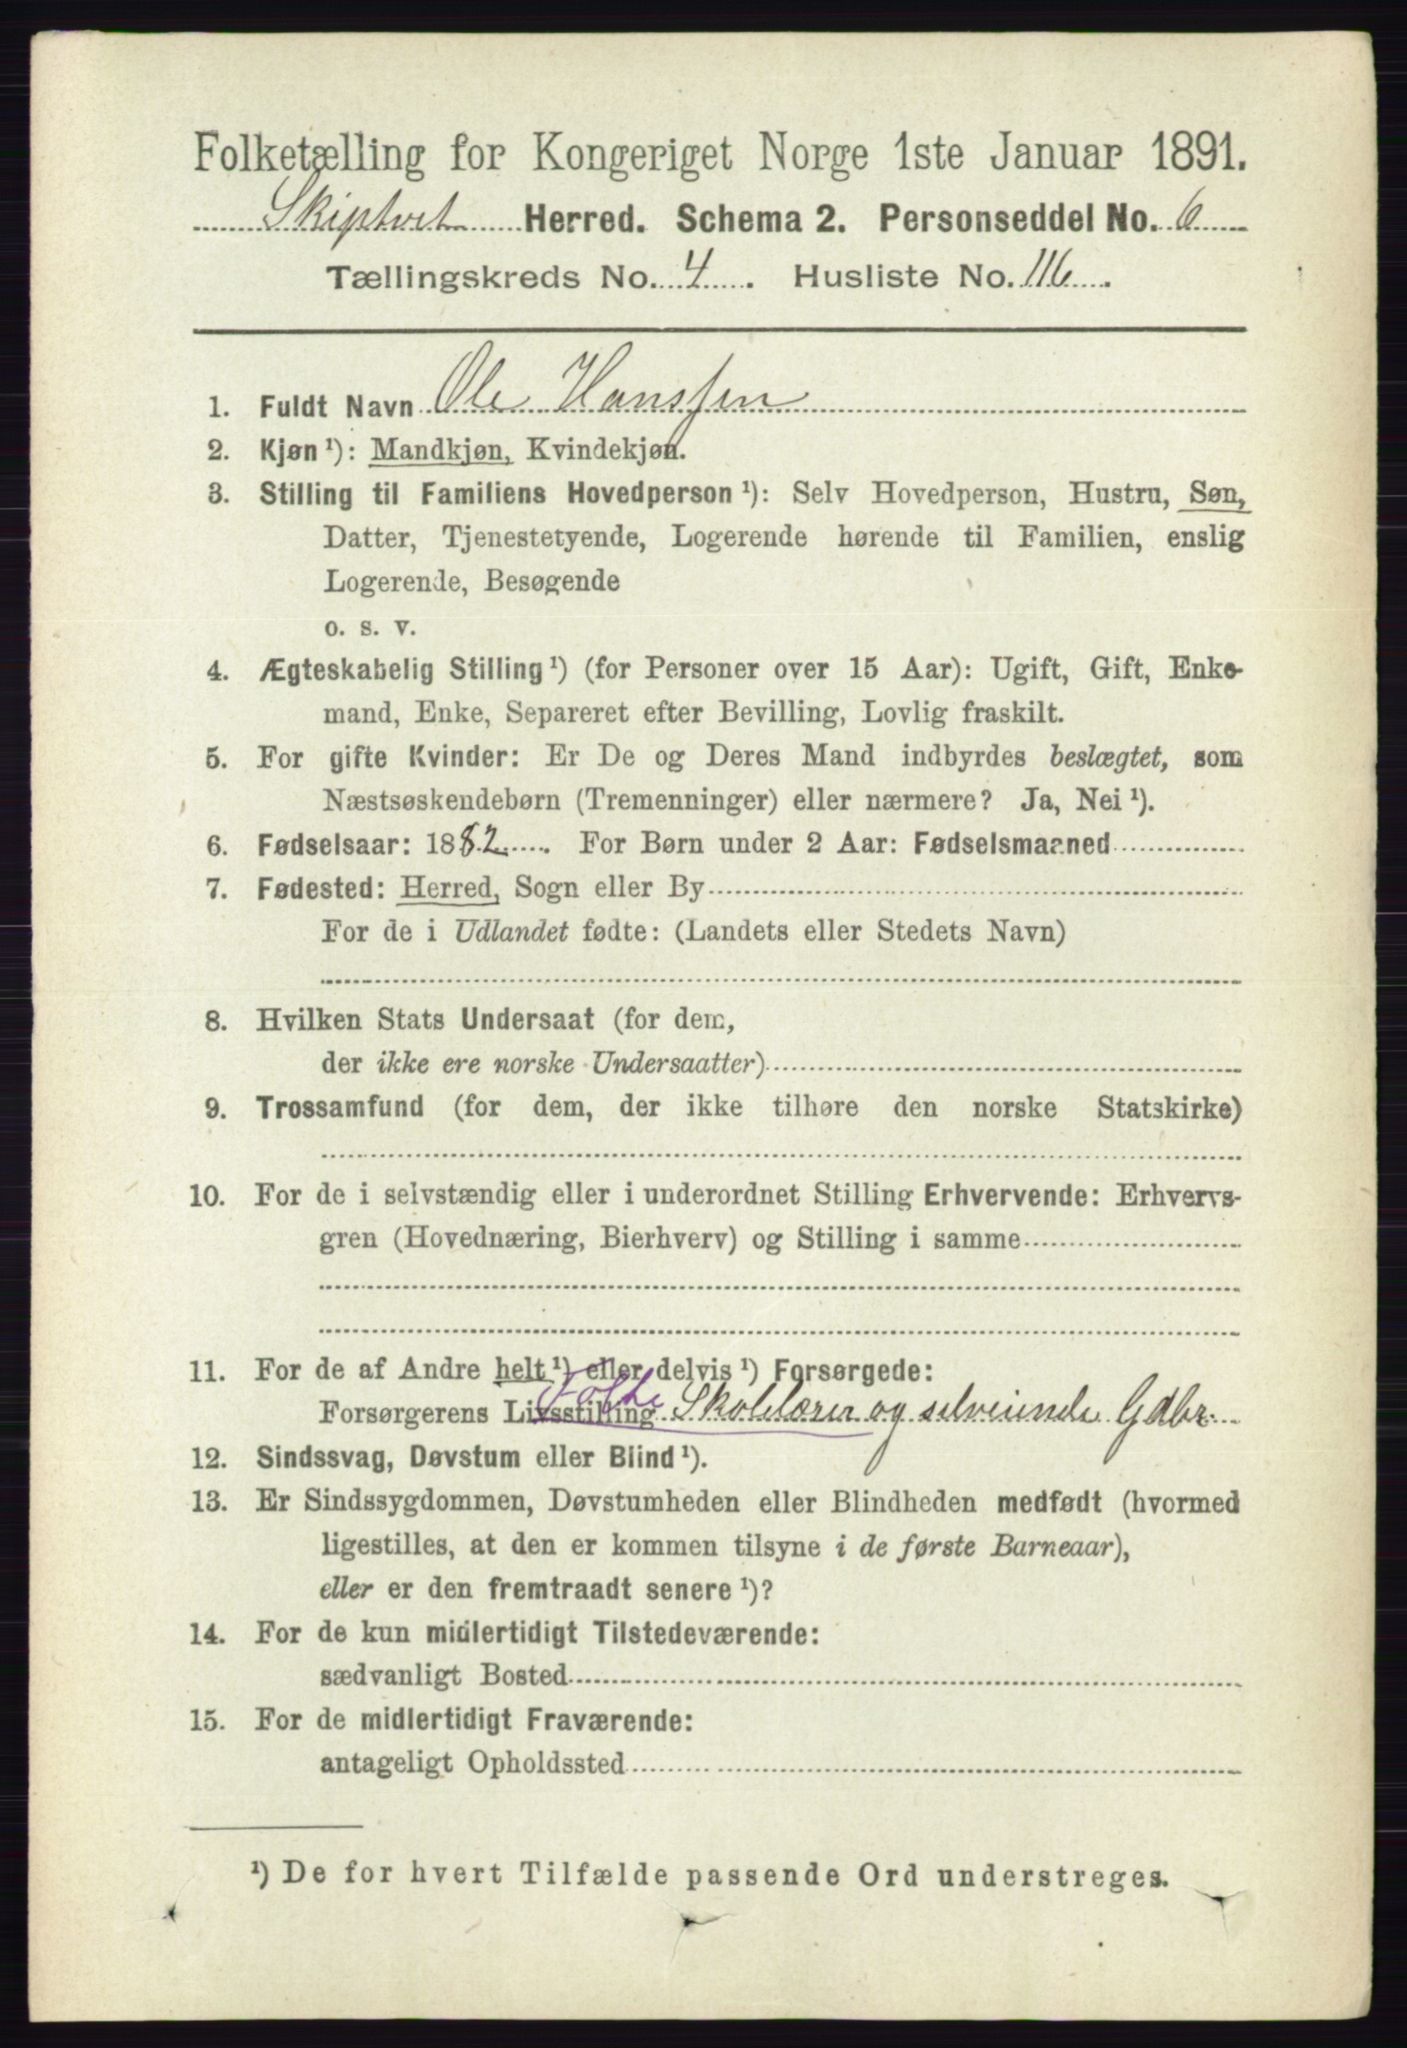 Folketælling for Kongeriget Norge 1ste Januar 1891.
Skiptvet Herred. Schema 2. Personseddel No. 6
Tællingskreds No. 4. Husliste No. 116.
1. Fuldt Navn Ole Hanssen
2. Kjøn ¹): Mandkjøn, Kvindekjøn.
3. Stilling til Familiens Hovedperson ¹): Selv Hovedperson, Hustru, Søn,
Datter, Tjenestetyende, Logerende hørende til Familien, enslig
Logerende, Besøgende
o. s. v.
4. Ægteskabelig Stilling ¹) (for Personer over 15 Aar): Ugift, Gift, Enke-
mand, Enke, Separeret efter Bevilling, Lovlig fraskilt.
5. For gifte Kvinder: Er De og Deres Mand indbyrdes beslægtet, som
Næstsøskendebørn (Tremenninger) eller nærmere? Ja, Nei ¹).
6. Fødselsaar: 1882. For Børn under 2 Aar: Fødselsmaaned
7. Fødested: Herred, Sogn eller By
For de i Udlandet fødte: (Landets eller Stedets Navn)
8. Hvilken Stats Undersaat (for dem,
der ikke ere norske Undersaatter)
9. Trossamfund (for dem, der ikke tilhøre den norske Statskirke)
10. For de i selvstændig eller i underordnet Stilling Erhvervende: Erhvervs-
gren (Hovednæring, Bierhverv) og Stilling i samme
11. For de af Andre helt ¹) eller delvis ¹) Forsørgede:
Forsørgerens Livsstilling Skolelærer og selveiende Gdbr.
12. Sindssvag, Døvstum eller Blind ¹).
13. Er Sindssygdommen, Døvstumheden eller Blindheden medfødt (hvormed
ligestilles, at den er kommen tilsyne i de første Barneaar),
eller er den fremtraadt senere ¹)?
14. For de kun midlertidigt Tilstedeværende:
sædvanligt Bosted
15. For de midlertidigt Fraværende:
antageligt Opholdssted
¹) De for hvert Tilfælde passende Ord understreges.